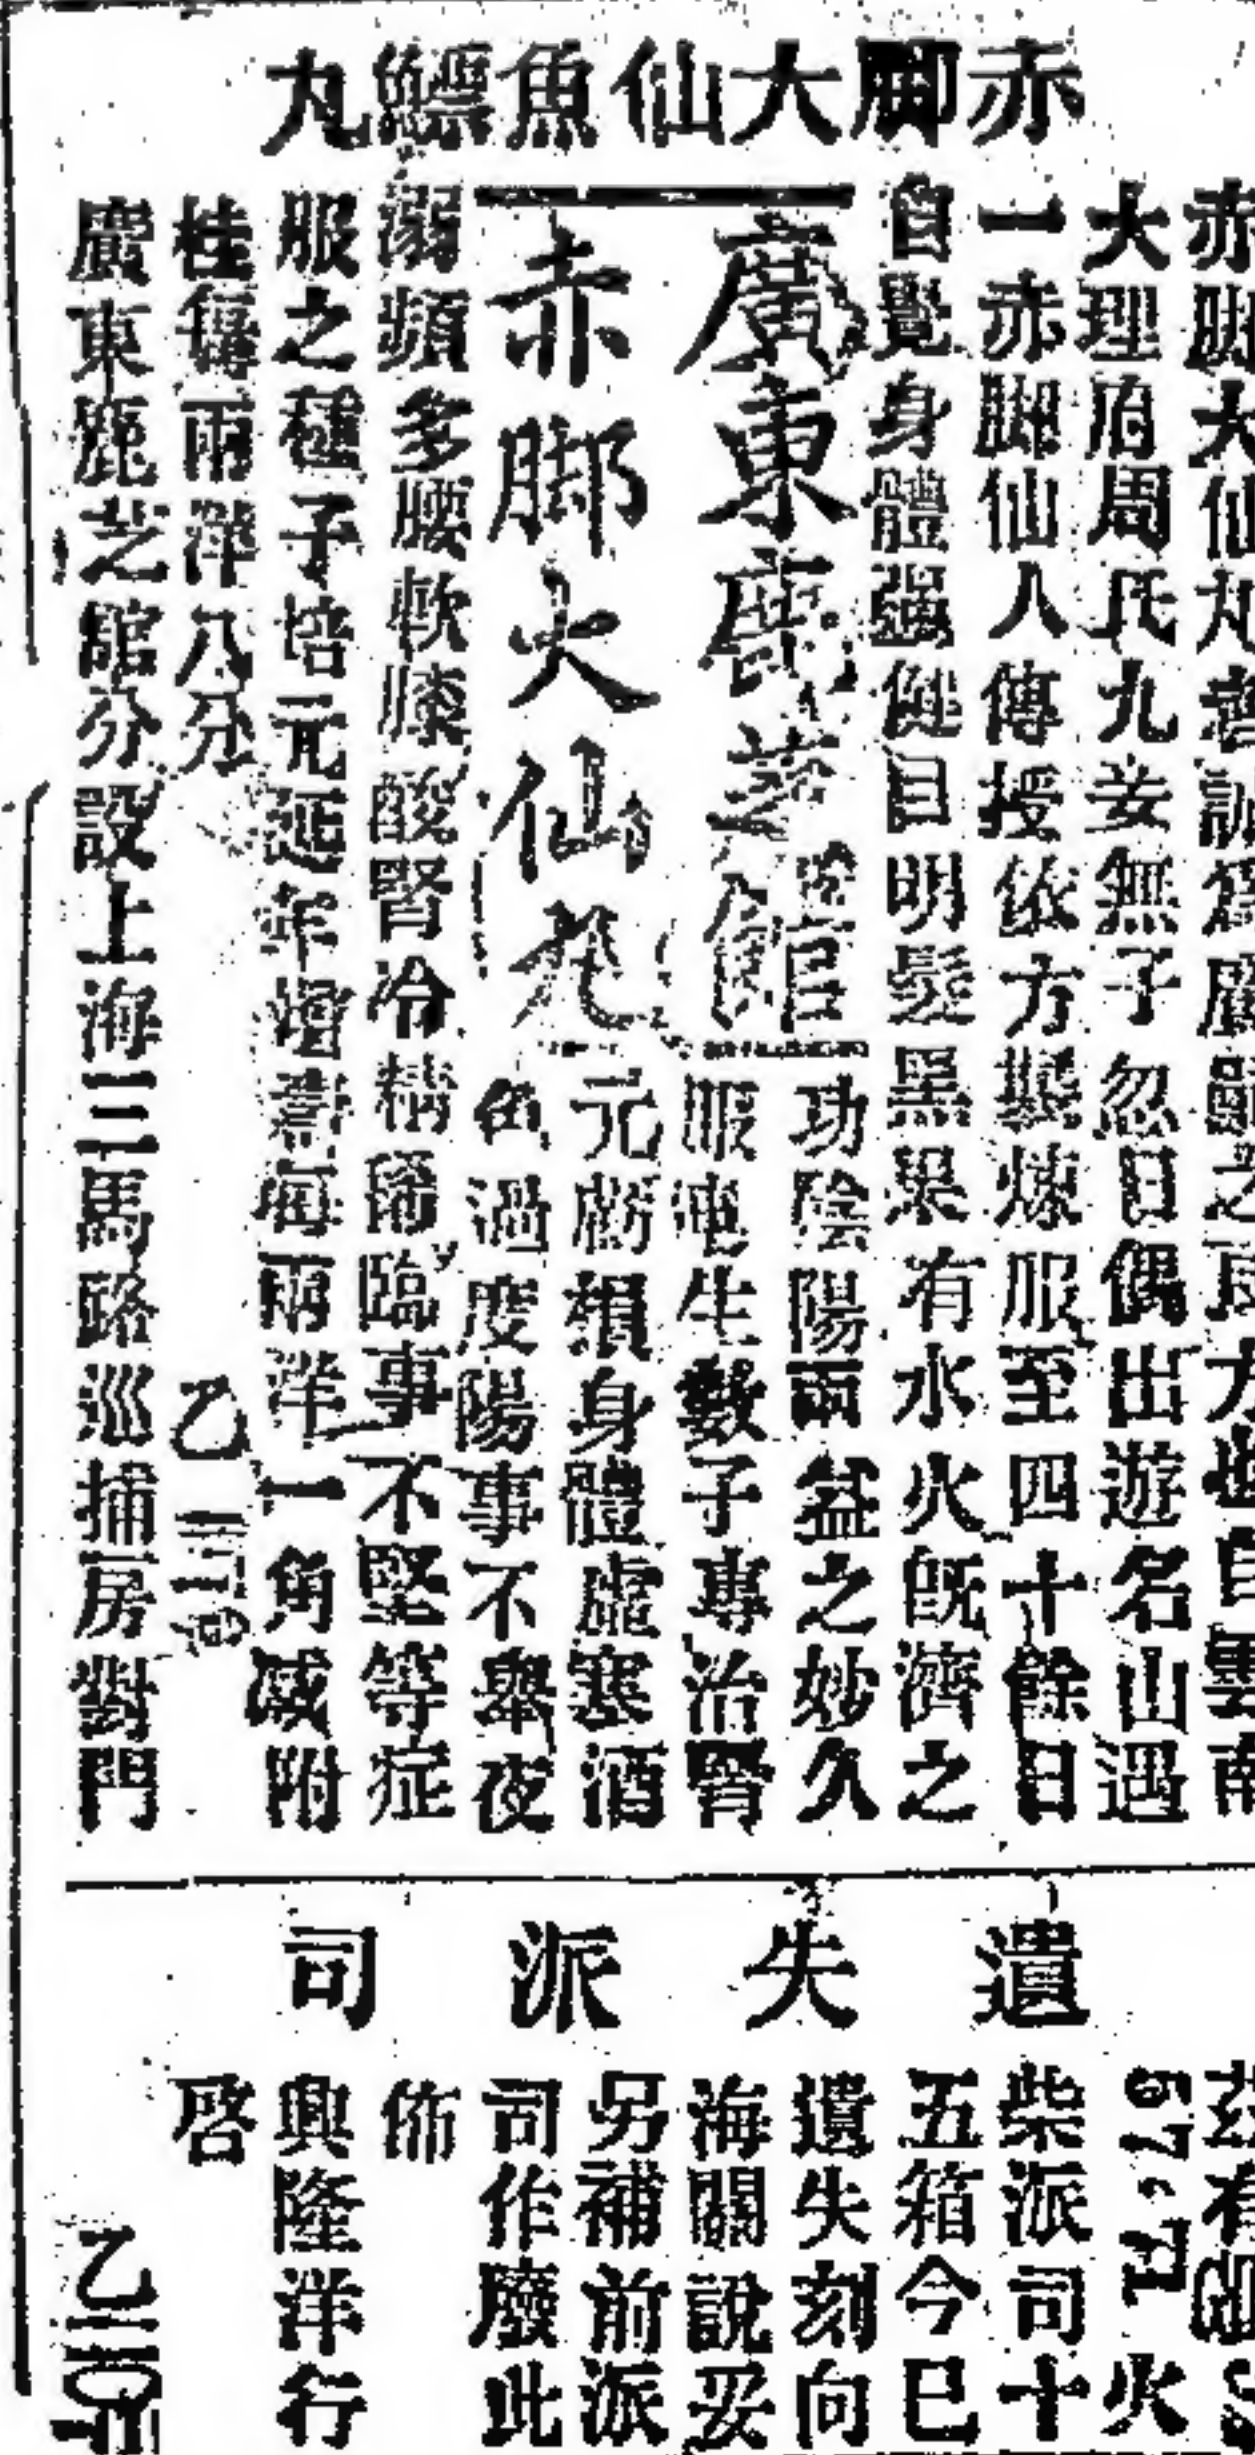 赤脚大仙魚鰾丸
赤脚大仙丸誠為廣嗣之良方也自雲南
大理府周氏九妾無子忽日偶出遊名山遇
一赤脚仙人傳授依方製煉服至四十餘日
自覺身體强健目明髮黑果有水火旣濟之
功陰陽兩益之妙久
服連生數子專治腎
廣東鹿芝館
赤脚大仙丸
元虧損身體虛寒酒
色過度陽事不舉夜
溺頻多腰軟膝酸腎冷精稀臨事不堅等症
服之種子培元延年增壽每兩洋一角减附
桂每兩洋八分
乙
廣東鹿芝館分設上海三馬路巡捕房對門
遺失派司
茲有
火
柴派司十
五箱今已
遺失刻向
海關說妥
另補前派
司作廢此
佈
興隆洋行
啓
乙